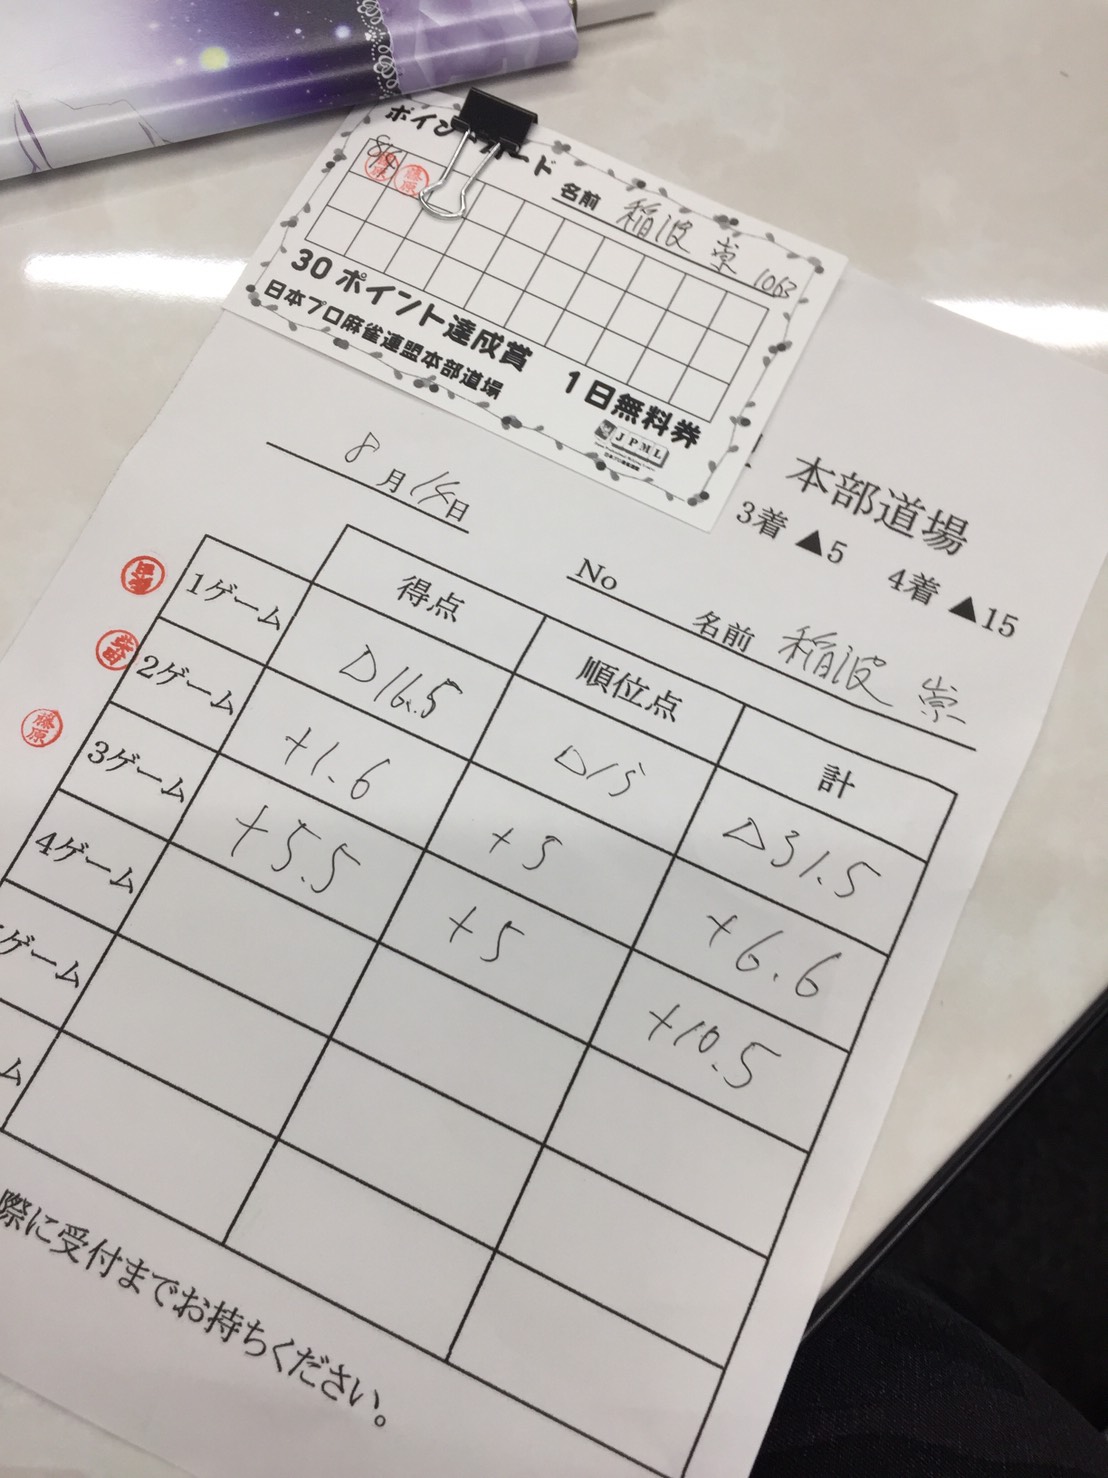 ポイントカード
8/14 藤原 藤原
名前 稲波 崇 1063
30 ポイント達成賞 1日無料券
日本プロ麻雀連盟本部道場
JPML
本部道場
3着 ▲5 4着 ▲15
8月14日
No 名前 稲波 崇
得点 順位点 計
1ゲーム △16.5 △15 △31.5
2ゲーム +1.6 +5 +6.6
3ゲーム +5.5 +5 +10.5
4ゲーム
ゲーム
ム
藤原
際に受付までお持ちください。